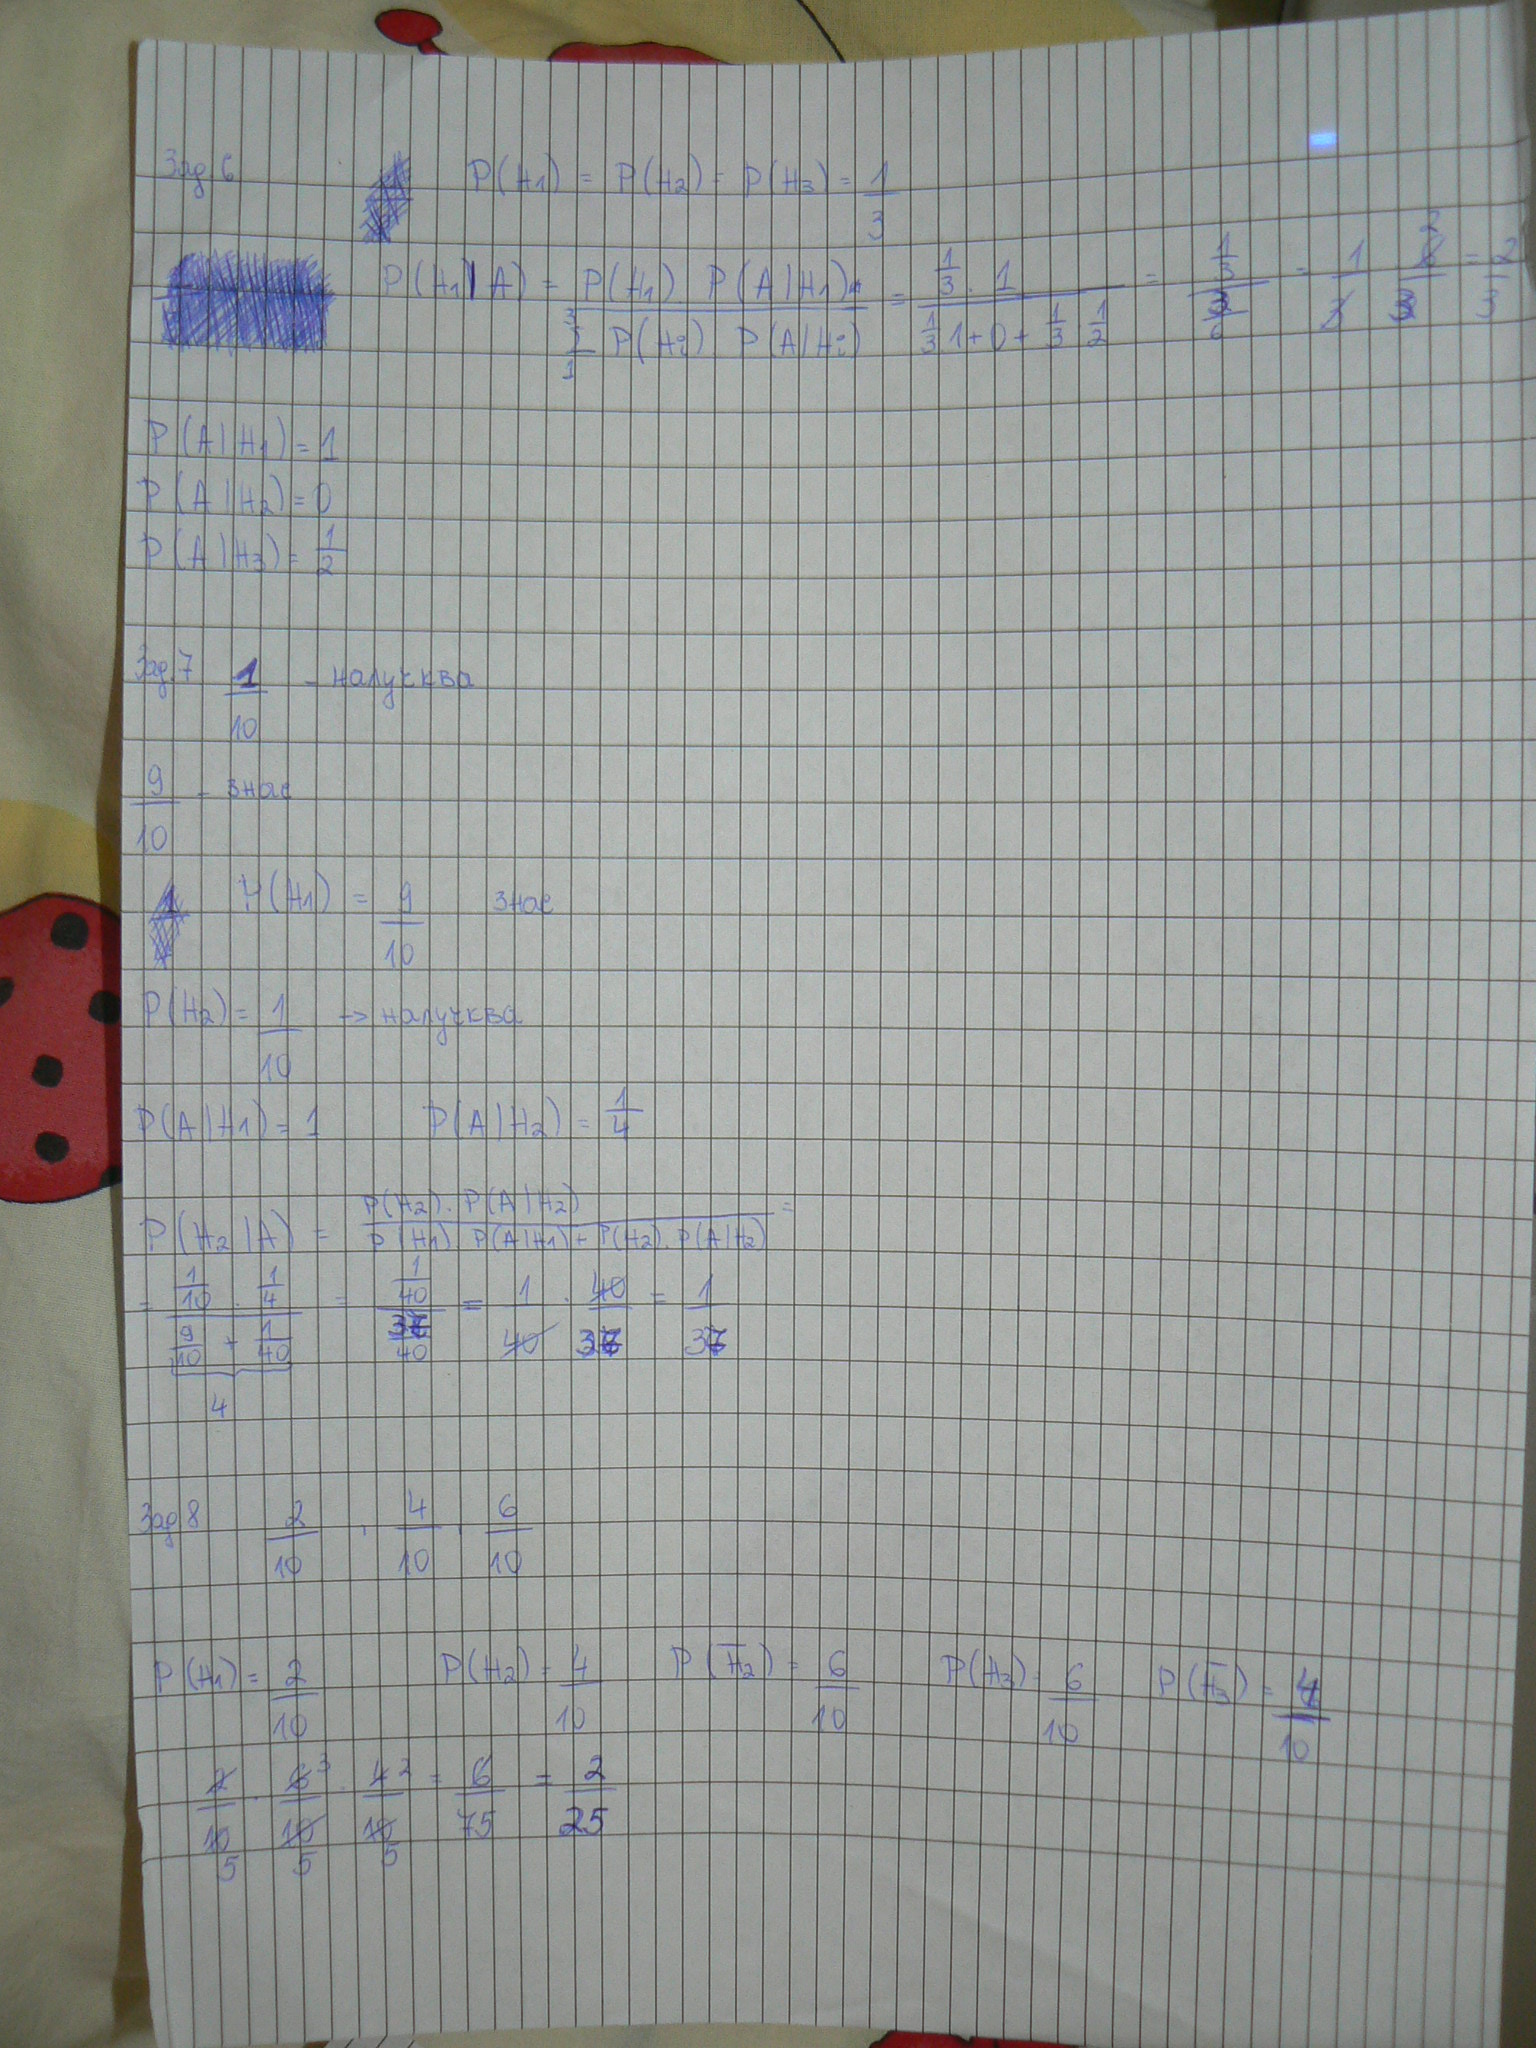 Зад 6 P(H1) = P(H2) = P(H3) = 1/3
P(H1|A) = P(H1) P(A|H1) / 3 Σ 1 P(Hi) P(A|Hi) = 1/3 . 1 / 1/3 1+0+ 1/3 1/2 = 1/3 / 3/6 = 1/3 6/3 2 = 2/3
P(A|H1)=1
P(A|H2)=0
P(A|H3)=1/2
Зад.7 1/10 - налучква
9/10 - знае
P(H1) = 9/10 знае
P(H2)= 1/10 -> налучква
P(A|H1)=1 P(A|H2) = 1/4
P(H2|A) = P(H2). P(A|H2) / P(H1). P(A|H1)+ P(H2). P(A|H2) =
= 1/10 . 1/4 / 9/10 + 1/40 = 1/40 / 37/40 = 1/40 . 40/37 = 1/37
4
Зад 8 2/10 . 4/10 . 6/10
P(H1)= 2/10 P(H2)= 4/10 P(H̅2)= 6/10 P(H3)= 6/10 P(H̅3) = 4/10
2/10 5 . 6 3/10 5 . 4 2/10 5 = 6/75 = 2/25